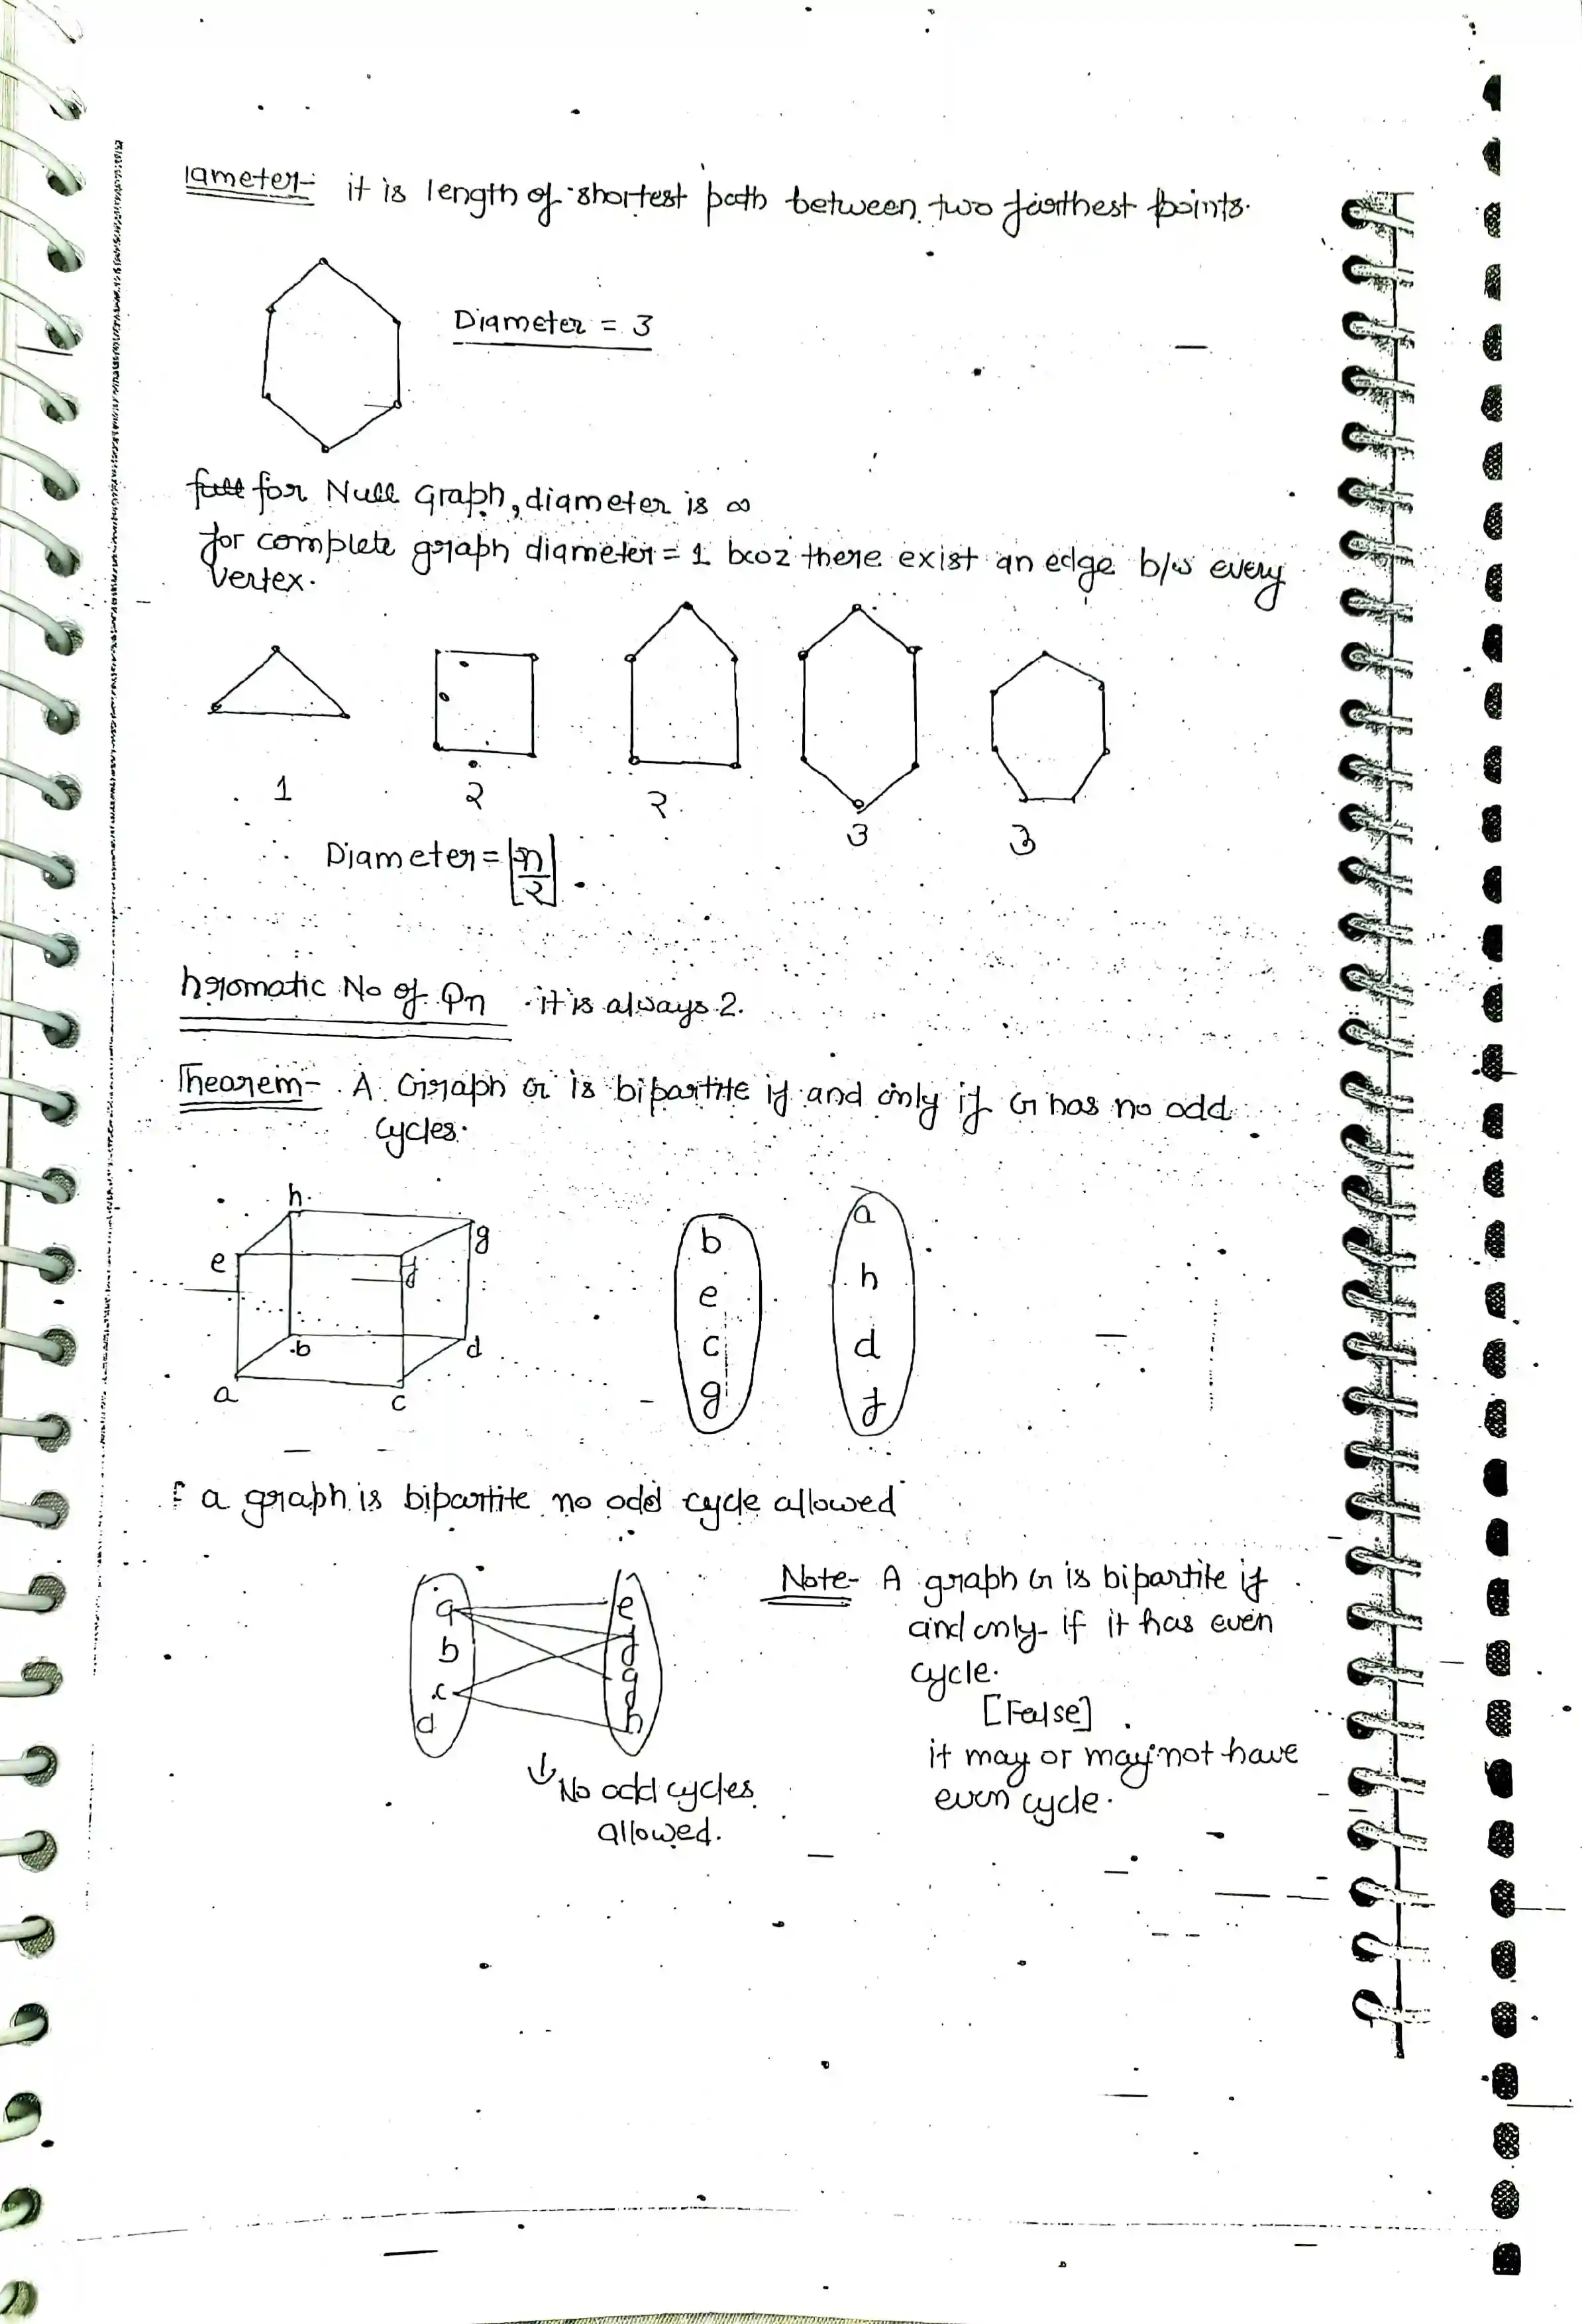 iameter- it is length of shortest path between two farthest points.
Diameter = 3
for Null Graph, diameter is ∞
for complete graph diameter = 1 bcoz there exist an edge b/w every
vertex.
1 2 2 3 3
∴ Diameter = ⌊n/2⌋.
hromatic No of Qn it is always 2.
Theorem- A Graph G is bipartite if and only if G has no odd
cycles.
h
g
e
f
b
d
a
c
b
e
c
g
a
h
d
f
f a graph is bipartite no odd cycle allowed
a
b
c
d
e
f
g
h
↓ No odd cycles
allowed.
Note- A graph G is bipartite if
and only if it has even
cycle.
[False]
it may or may not have
even cycle.